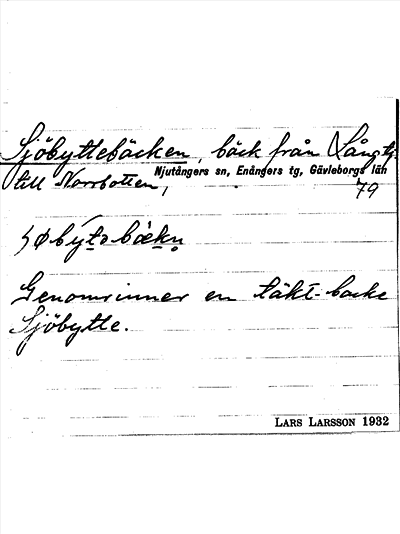 Sjöbyttebäcken, bäck från Långtj.
Njutångers sn, Enångers tg, Gävleborgs län
till Norrbotten, 79
Genomrinner en täkt-backe
Sjöbytte.
LARS LARSSON 1932